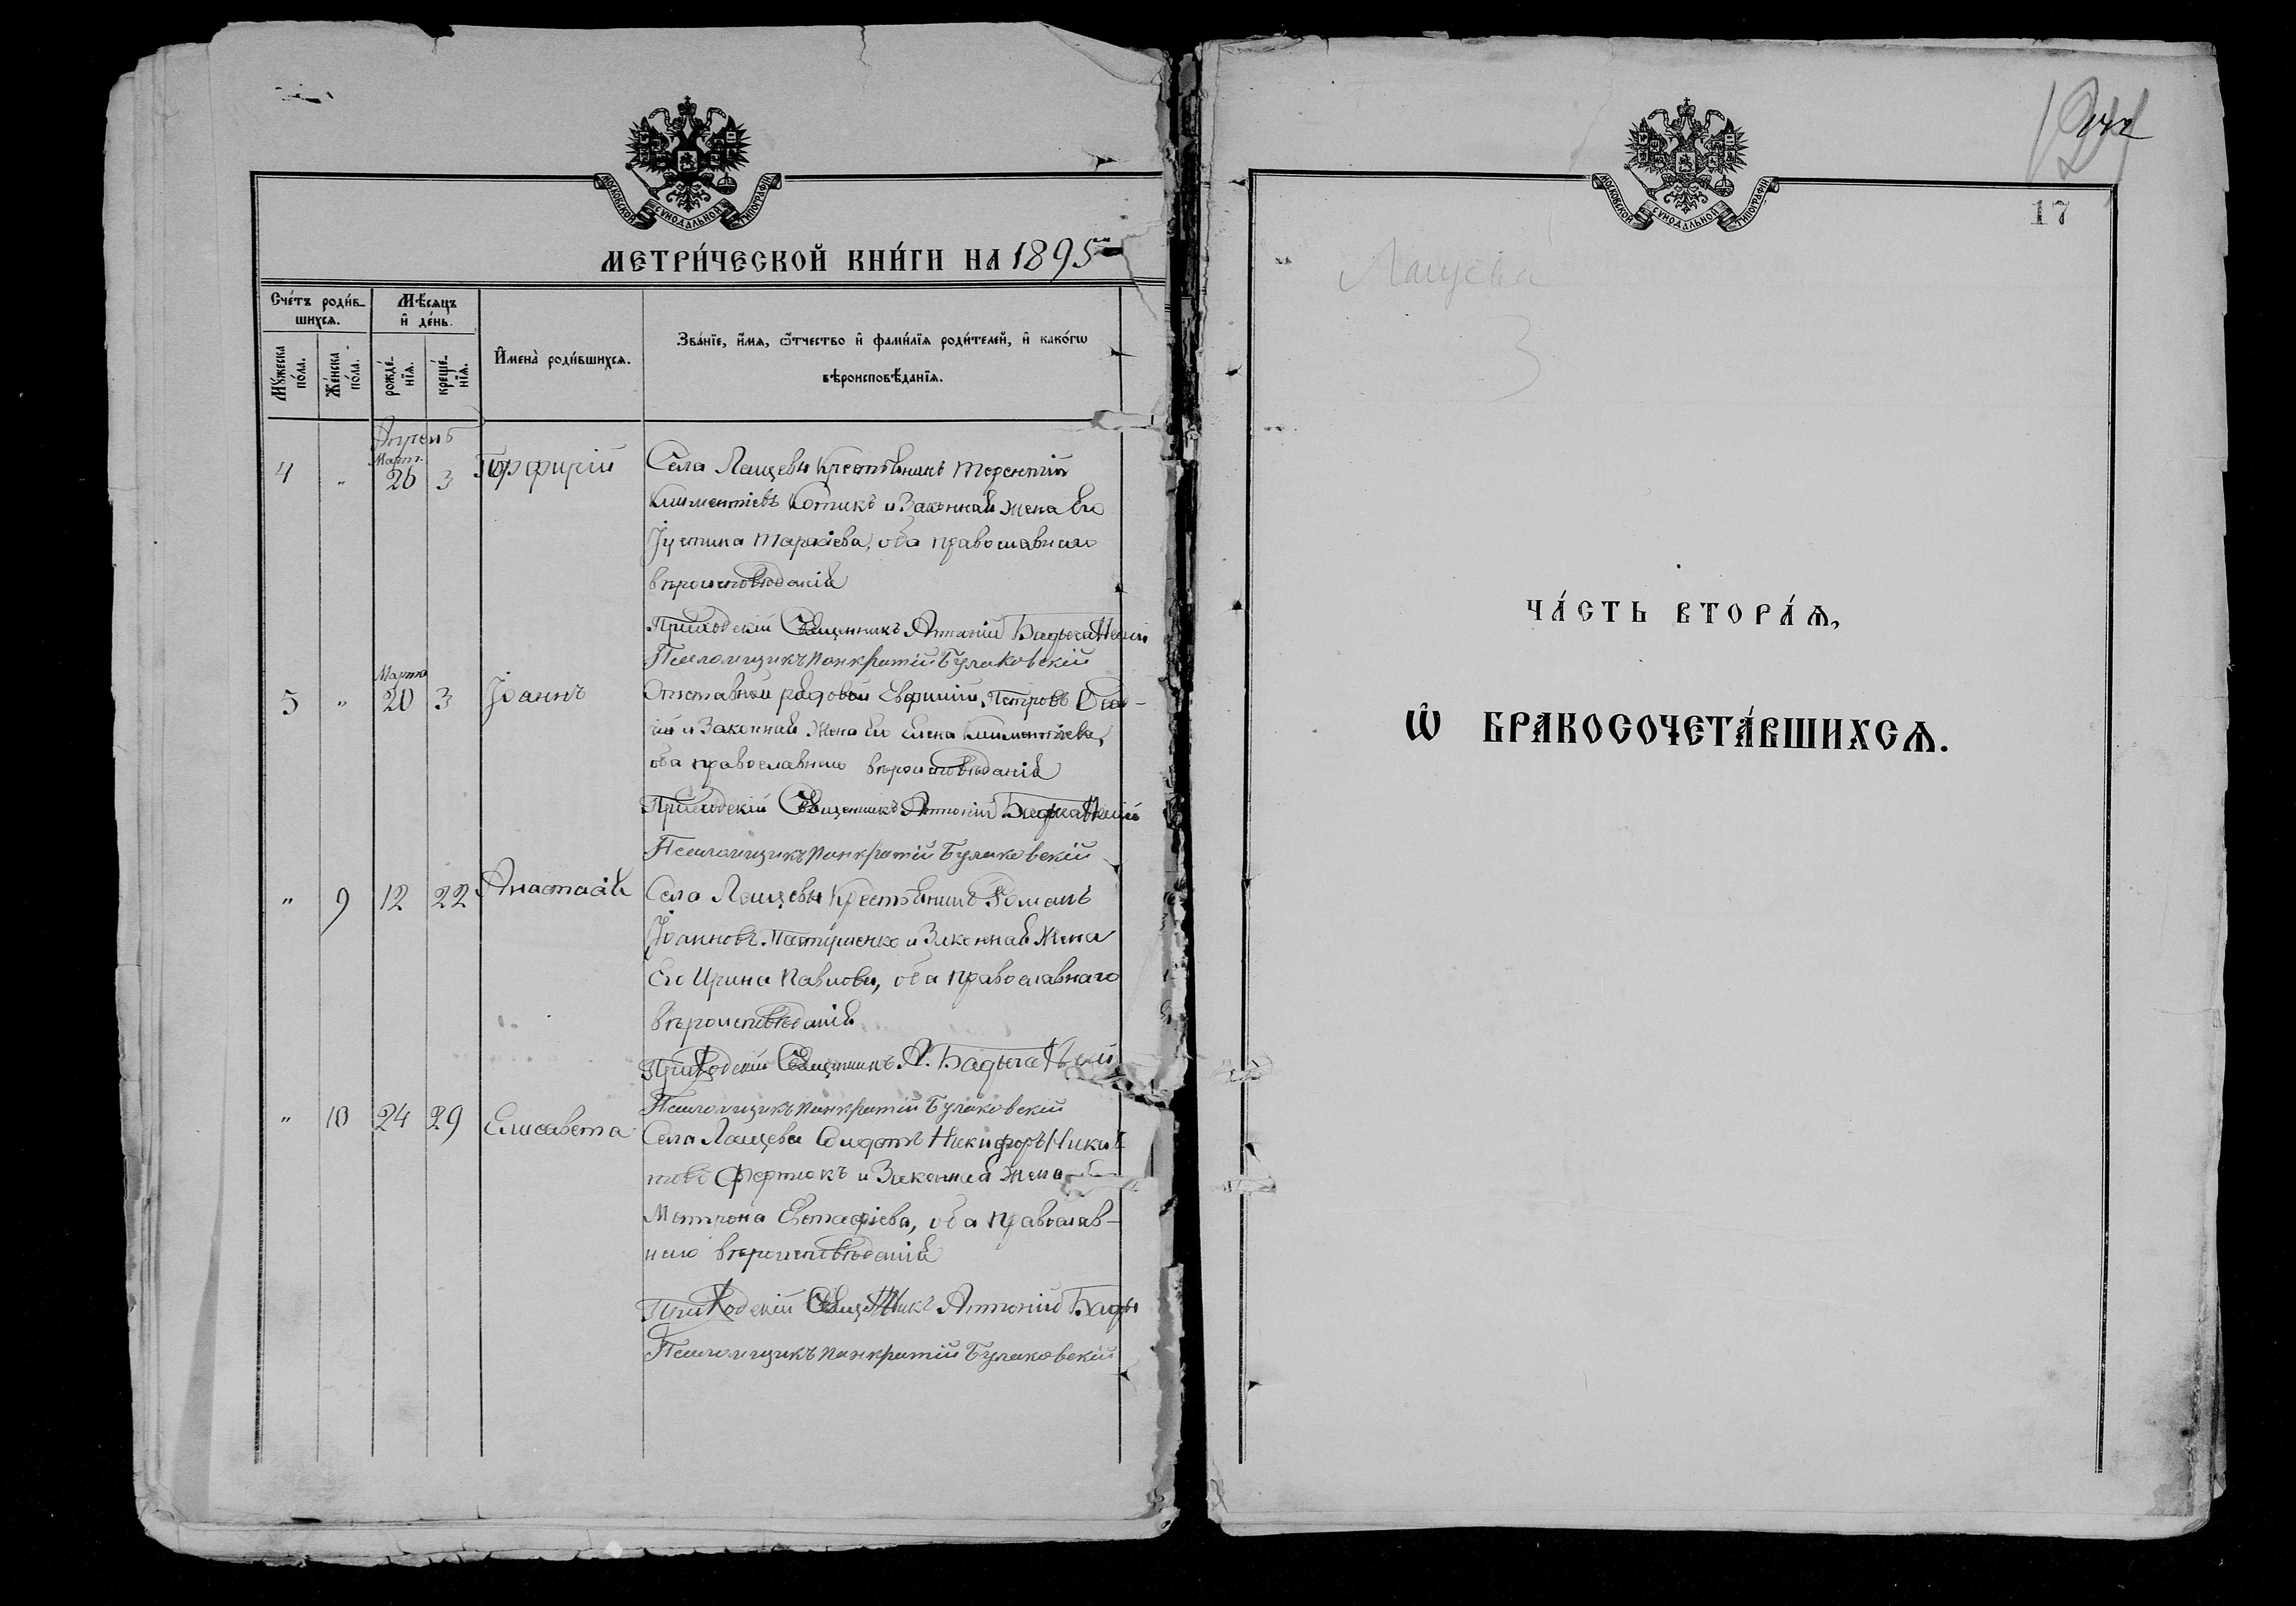 МОСКОВСКОЙ СѴНОДАЛЬНОЙ ТИПОГРАФІИ
МЕТРИ́ЧЕСКОЙ КНИ́ГИ НА 1895
Сче́тъ роди́в-
шихсѧ.
Мѣ́сѧцъ
и҆ де́нь.
Мꙋ́жеска
по́ла.
Же́нска
по́ла.
рожде́-
нїѧ.
креще́-
нїѧ.
И҆мена̀ роди́вшихсѧ.
Зва́нїе, и҆́мѧ, ѻ҆́тчество и҆ фами́лїѧ роди́телей, и҆ како́гѡ
вѣроисповѣ́данїѧ.
Апрель
4 " Март. 26 3 Порфирій Села Лащевы Крестьянинъ Терентій
Климентіевъ Котикъ и Законная жена Его
Іустина Тарасіева, оба православнаго
вѣроисповѣданія
Приходскій Священникъ Антоній
Псаломщикъ Панкратій Булаковскій
5 " Марта 20 3 Іоаннъ Отставной рядовой Евфимій Петровъ
и Законная Жена Его Елена Климентіева,
оба православнаго вѣроисповѣданія
Приходскій Священникъ Антоній
Псаломщикъ Панкратій Булаковскій
" 9 12 22 Анастасія Села Лащевы Крестьянинъ Романъ
Іоанновъ и Законная Жена
Его Ирина Павлова, оба православнаго
вѣроисповѣданія
Приходскій Священникъ А.
Псаломщикъ Панкратій Булаковскій
" 10 24 29 Елисавета Села Лащева Солдатъ Никифоръ Ники-
товъ Фертюкъ и Законная жена
Матрона Евстафіева, оба православ-
наго вѣроисповѣданія
Приходскій Священникъ Антоній
Псаломщикъ Панкратій Булаковскій
МОСКОВСКОЙ СѴНОДАЛЬНОЙ ТИПОГРАФІИ
17
Лащева
3
ЧА́СТЬ ВТОРА́Ѧ,
Ѡ҆ БРАКОСОЧЕТА́ВШИХСѦ.